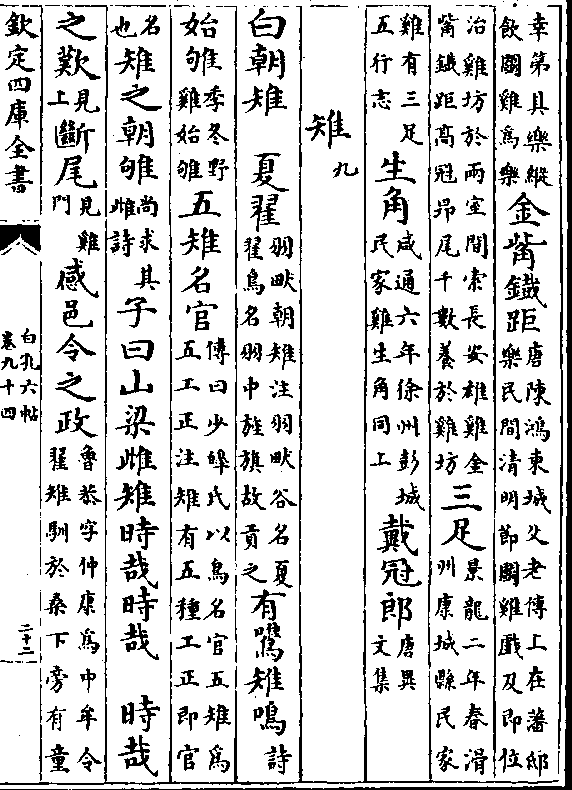 幸第具樂縱飲鬭雞為樂金觜鐵距唐陳鴻東城父老傳上在藩邸樂民間清明節鬭雞戲及即位
治雞坊於兩室間索長安雄雞金觜鐵距髙冠昂尾千數養於雞坊三足景龍二年春滑州康城縣民家
雞有三足五行志生角咸通六年徐州彭城民家雞生角同上戴冠郎唐異文集
雉九
白朝雉 夏翟羽畎朝雉注羽畎谷名夏翟鳥名羽中旌旗故貢之有鷕雉鳴詩
始雊季冬野雞始雊五雉名官傳曰少皞氏以鳥名官五雉為五工正注雉有五種工正即官
名也雉之朝雊尚求其雌詩子曰山梁雌雉時哉時哉 時哉
之歎見上斷尾見雞門感邑令之政魯恭字仲康為中牟令翟雉馴於桑下旁有童
欽定四庫全書
白孔六帖
卷九十四
二十二